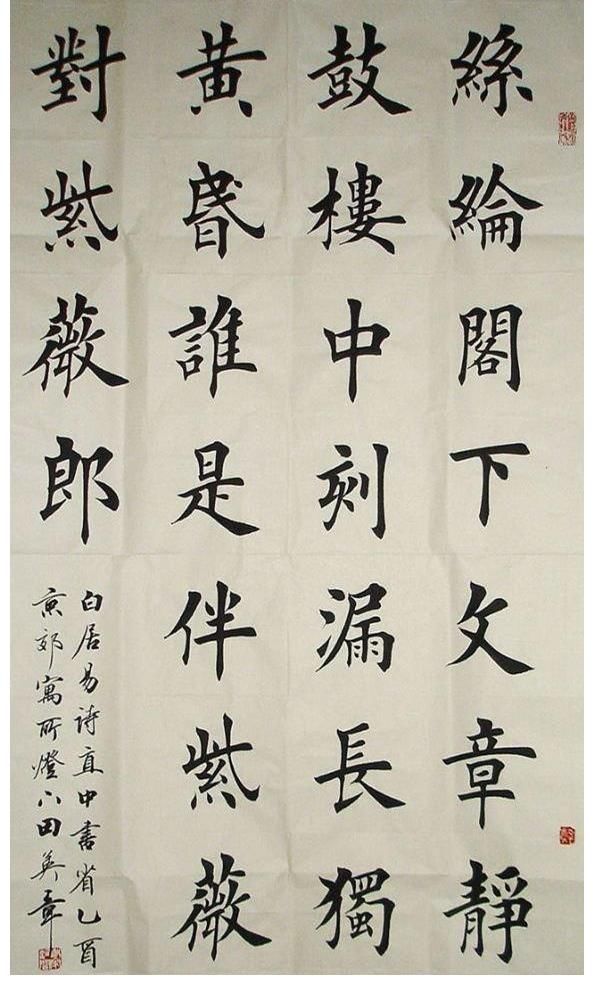 絲綸閣下文章靜
鼓樓中刻漏長獨
黄昬誰是伴紫薇
對紫薇郎
白居易詩直中書省乙酉
京郊寓所燈下田英章